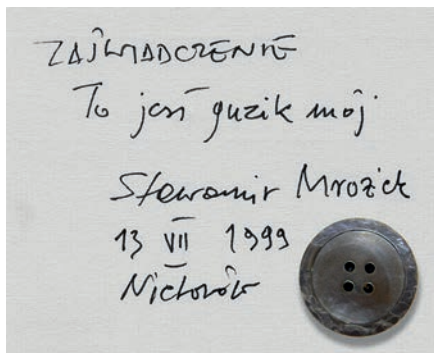 ZAŚWIADCZENIE
To jest guzik mój
Sławomir Mrożek
13 VII 1999